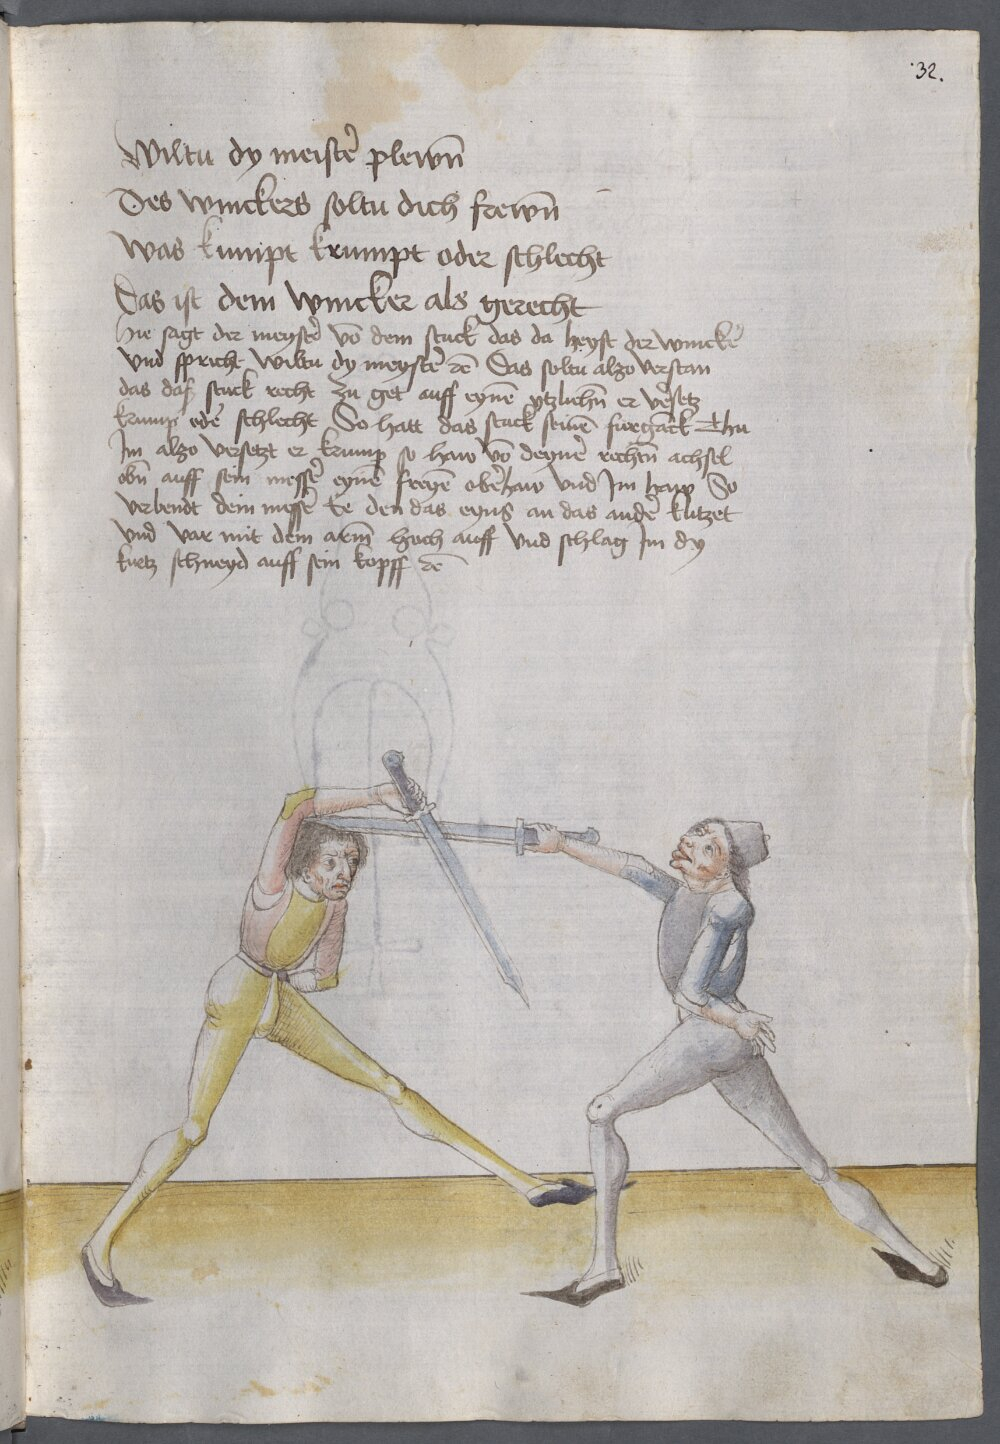 32.
Wiltu dy meister plewn̄
Des winckers soltu dich frewn̄
Was kumpt krumpt oder schlecht
Das ist dem wincker als gerecht
Hie sagt der meyster vō dem stuck das da heyst der wincker
Vnd spricht wiltu dy meyster ꝛc̄ Das soltu alzo verstan
das daß stuck recht zu get auff eynē ytzlichn̄ er versetz
krump oder schlecht So hatt das stuck seinē fürganck Thu
Im alzo versetzt er krump so haw vō deyner rechtn̄ achsel
obn̄ auff sein messer eynē freyē oberhaw vnd Im haw So
verbendt dein messer Ee den das eyns an das ander klitzet
vnd var mit dem arm̄ hoch auff vnd schlag Im dy
kurtz schneyd auff sein kopff ꝛc̄